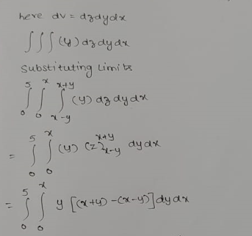 here dv = dzdydx
∫∫∫ (y) dzdydx
Substituting Limits
∫₀⁵ ∫₀ˣ ∫ₓ₋ᵧˣ⁺ʸ (y) dz dy dx
= ∫₀⁵ ∫₀ˣ (y) (z)ₓ₋ᵧˣ⁺ʸ dy dx
= ∫₀⁵ ∫₀ˣ y [(x+y) -(x-y)] dy dx